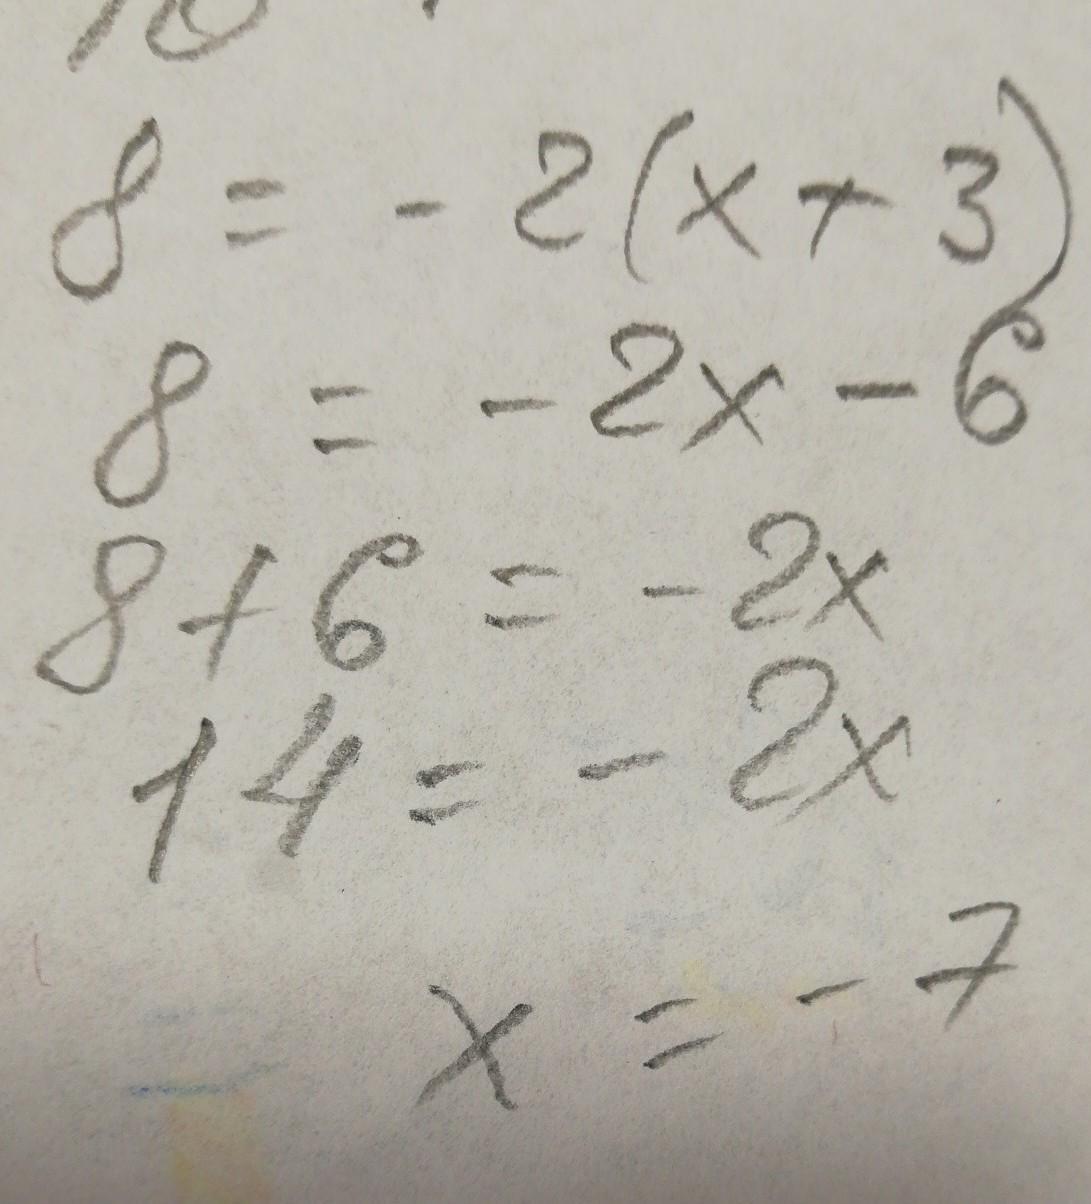 8 = - 2(x + 3)
8 = - 2x - 6
8 + 6 = - 2x
14 = - 2x
x = - 7